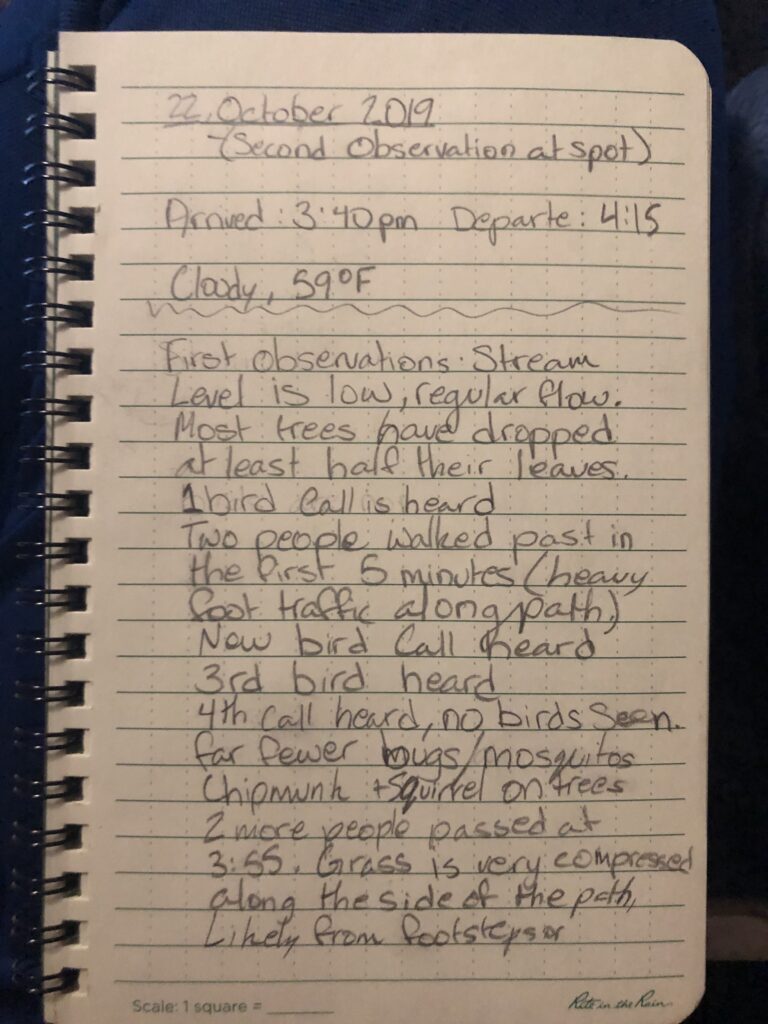 22, October 2019
(Second Observation at spot)
Arrived : 3:40pm Departe: 4:15
Cloudy, 59°F
First observations. Stream
Level is low, regular flow.
Most trees have dropped
at least half their leaves.
1 bird Call is heard
Two people walked past in
the first 5 minutes (heavy
foot traffic along path)
New bird Call heard
3rd bird heard
4th Call heard, no birds Seen.
far fewer bugs/mosquitos
Chipmunk + Squirrel on trees
2 more people passed at
3:55. Grass is very compressed
along the side of the path,
Likely from footsteps or
Scale: 1 square = ______
Rite in the Rain